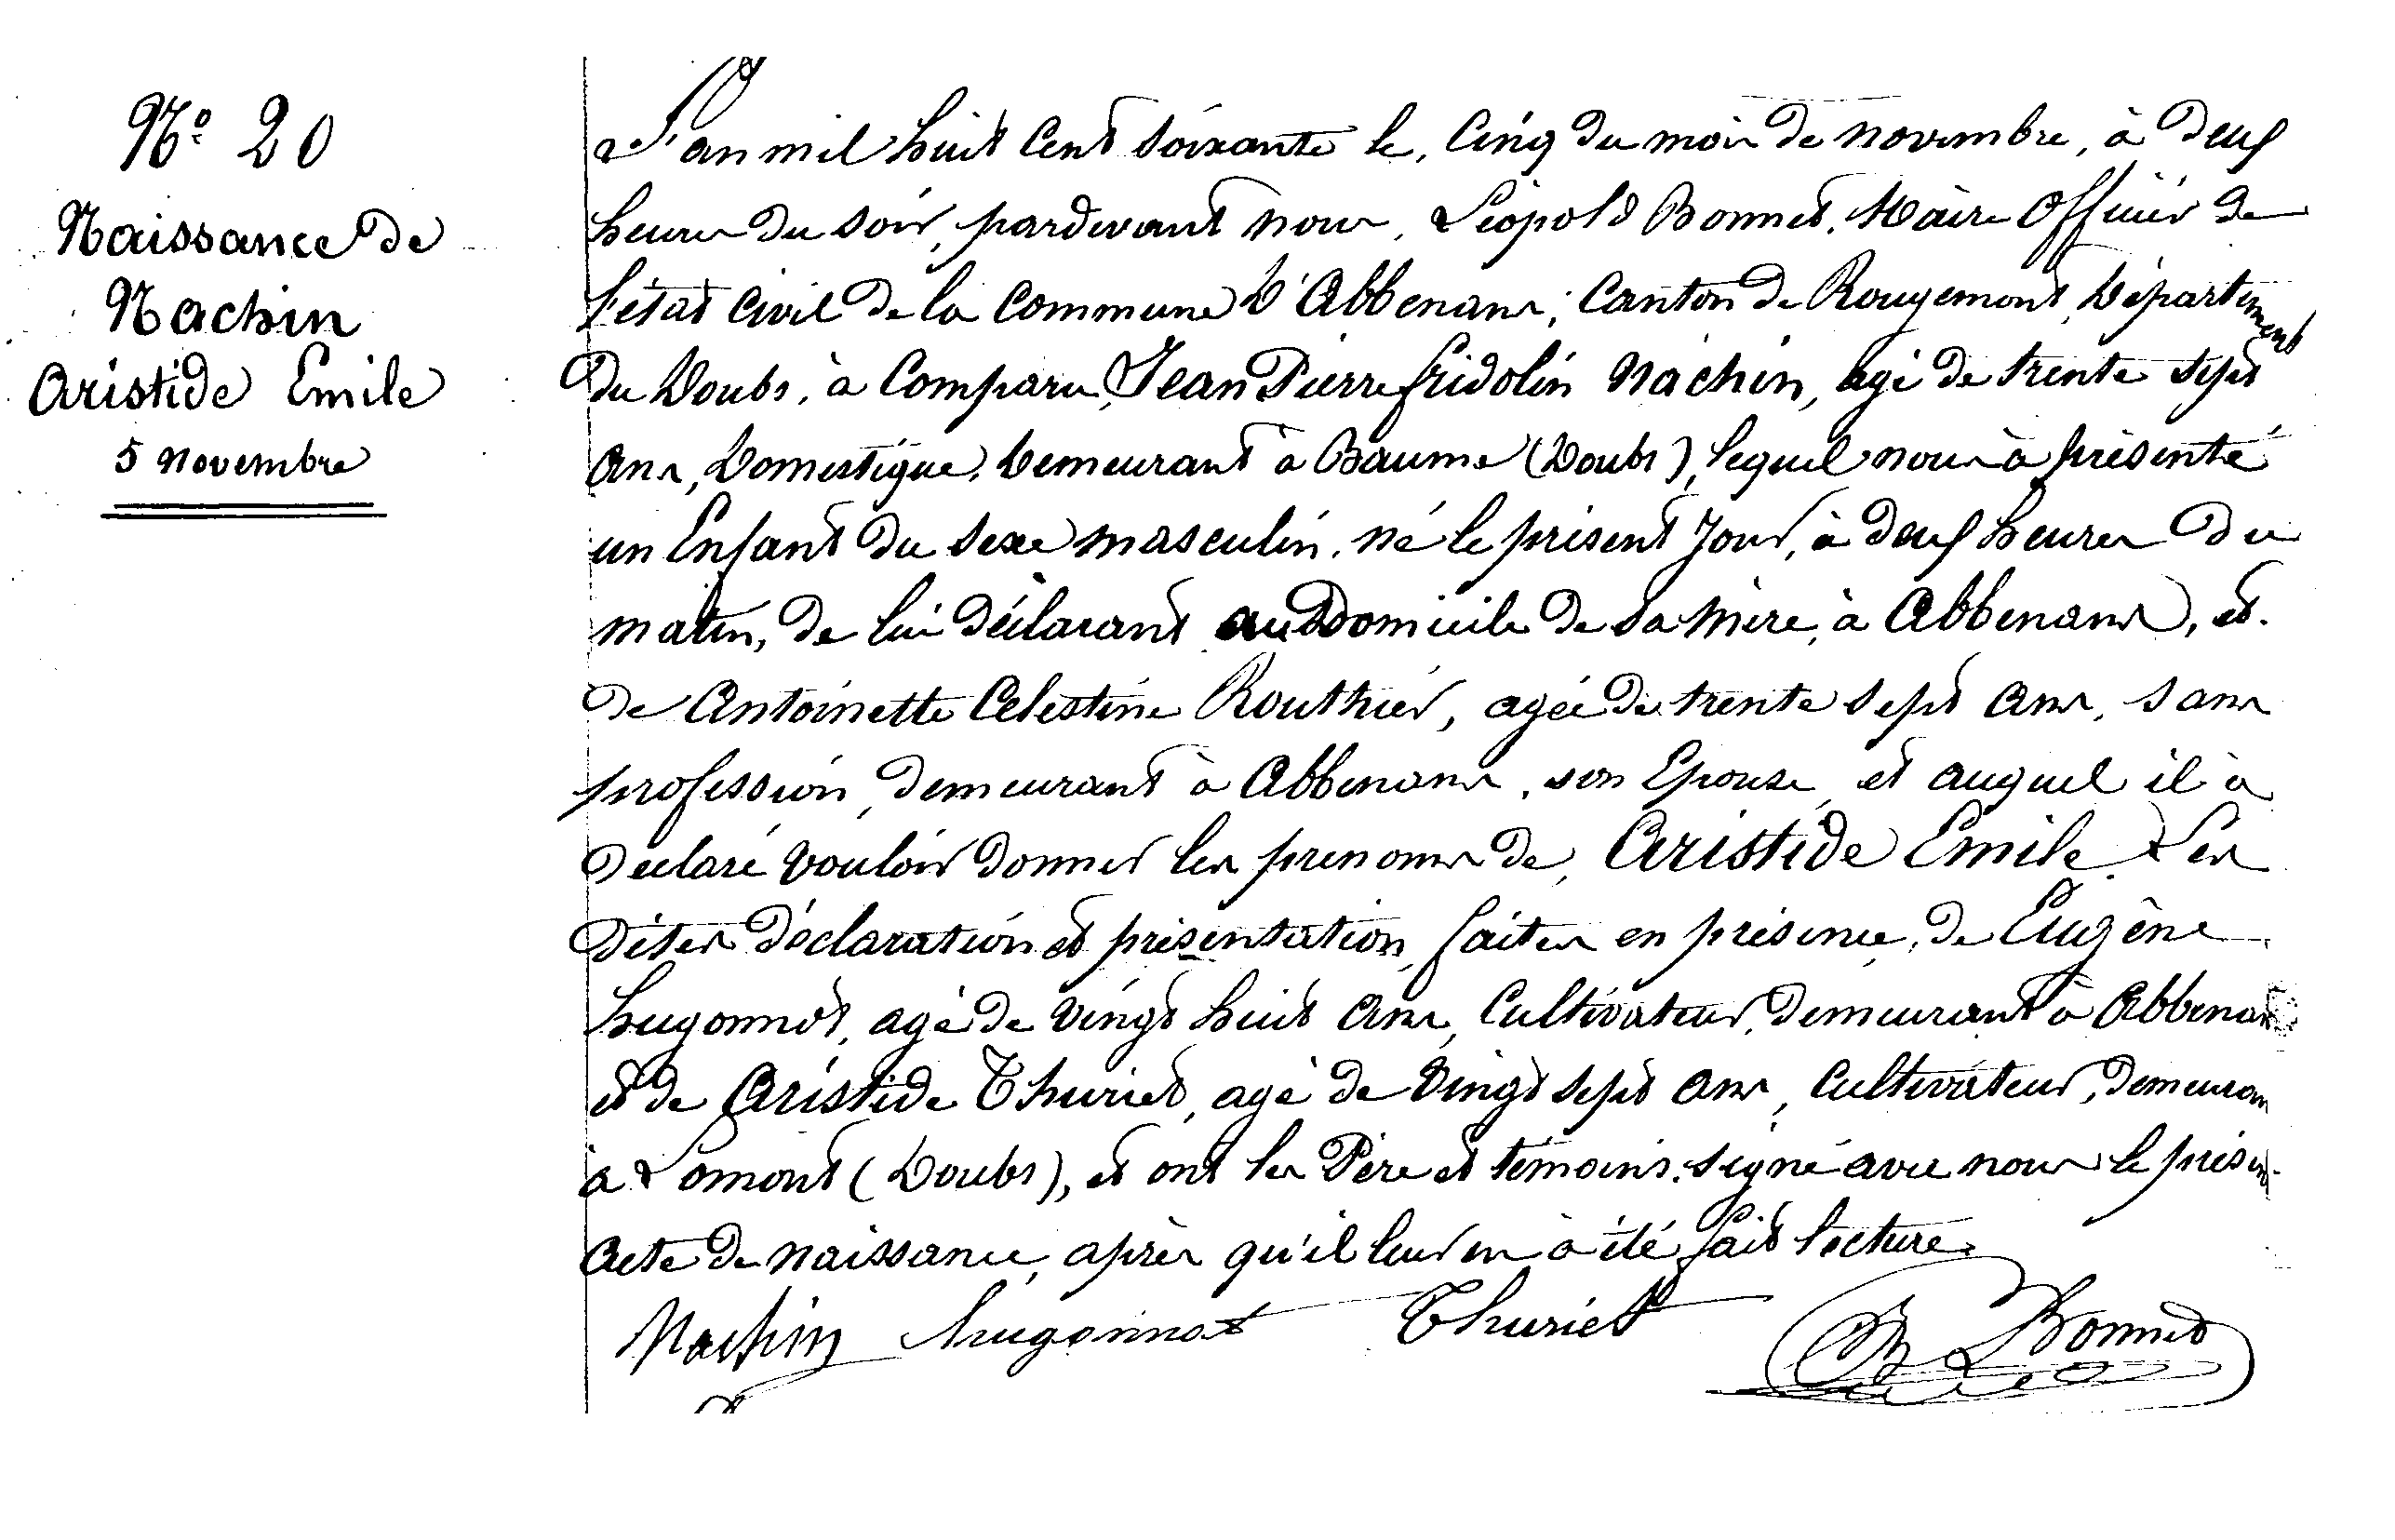 N.º 20
Naissance de
Nachin
Aristide Emile
5 novembre
L'an mil huit cent soixante le, cinq du mois de novembre, à deux
heures du soir, pardevant nous, Léopold Bonnet, Maire Officier de
l'état civil de la commune d'Abbenans, canton de Rougemont, Département
du Doubs, à comparu, Jean Pierre fridolin Nachin, agé de trente sept
ans, Domestique, demeurant à Baume (Doubs), lequel nous à présenté
un Enfant du sexe masculin, né le présent jour, à deux heures du
matin, de lui déclarant au Domicile de sa mère, à Abbenans, et
de Antoinette Celestine Routhier, agée de trente sept ans, sans
profession, demeurant à Abbenans, son Epouse, et auquel il à
déclaré vouloir donner les prenoms de, Aristide Emile. Les
dites déclaration et présentation, faites en présence, de Eugène
hugonnot, agé de vingt huit ans, cultivateur, demeurant à Abbenans
et de Aristide Thuriet, agé de vingt sept ans, cultivateur, demeuran
à Lomont (Doubs), et ont les Père et témoins, signé avec nous le présent
acte de naissance, après qu'il leur en à été fait lecture.
Nachin hugonnot Thuriet Bonnet